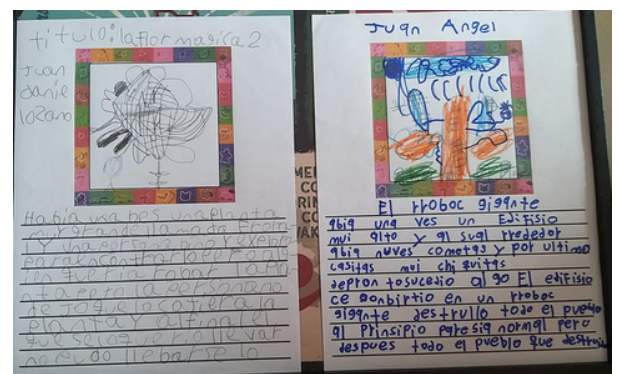 titulo: la flor magica 2
Juan
danie
lozano
Había una bes una planta
muy grande llamada
y una persona
para encontrar
en queria robar la
nta pero la persona no
de jo que lo co jiera la
planta y al final el
que se lo queria llevar
no pudo llebarse lo
Juan Angel
El rroboc gigante
abia una ves un Edifisio
mui alto y al sual rrededor
abia nuves cometas y por ultimo
casitas mui chi quitas
depron tosucedio al go El edifisio
ce conbirtio en un rroboc
gigante destrullo todo el pueblo
al prinsipio paresia normal pero
despues todo el pueblo que